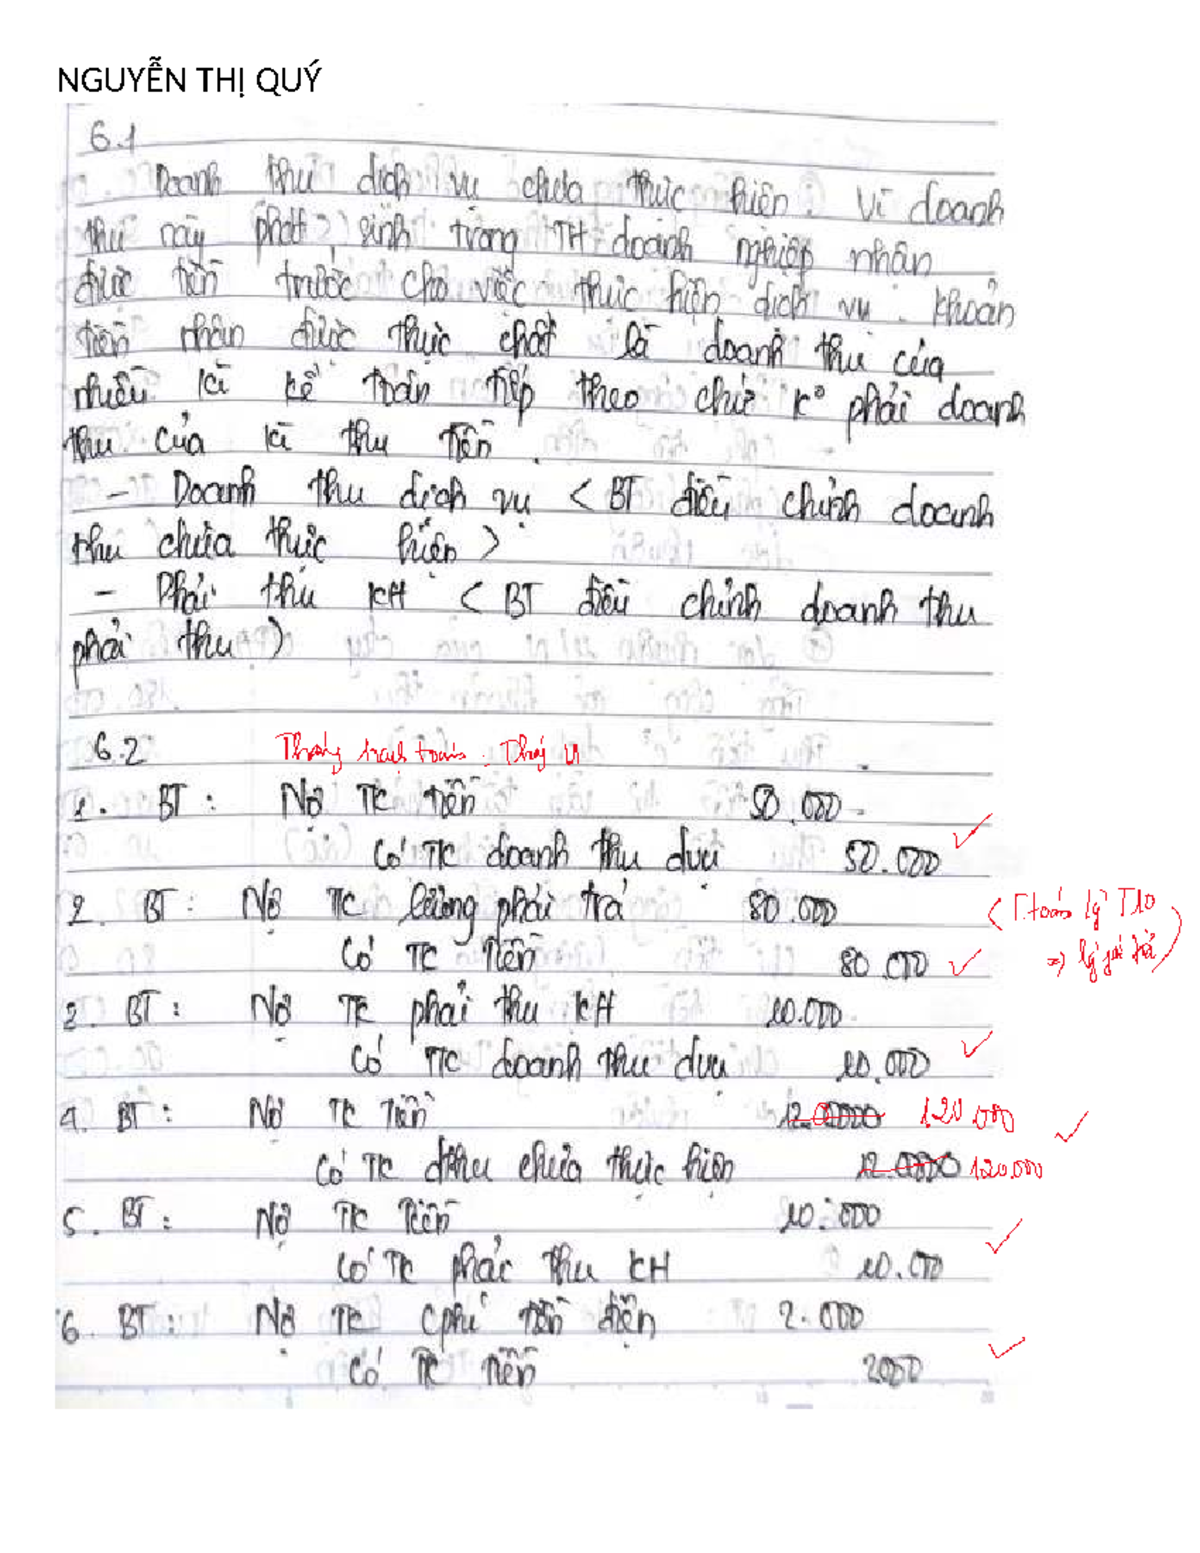 NGUYỄN THỊ QUÝ
6.1
Doanh thu dịch vụ chưa thực hiện. Vì doanh
thu này phát sinh trong TH doanh nghiệp nhận
được tiền trước cho việc thực hiện dịch vụ. Khoản
tiền nhận được thực chất là doanh thu của
nhiều kì kế toán tiếp theo chứ k° phải doanh
thu của kì thu tiền.
- Doanh thu dịch vụ < BT điều chỉnh doanh
thu chưa thực hiện >
- Phải thu KH < BT điều chỉnh doanh thu
phải thu >
6.2
1. BT : Nợ TK tiền 50.000
Có TK doanh thu dvu 50.000
2. BT : Nợ TK lương phải trả 80.000 (T.toán lg T10
Có TK Tiền 80.000 => lg phải trả)
3. BT : Nợ TK phải thu KH 10.000
Có TK doanh thu dvu 10.000
4. BT : Nợ TK Tiền 120.000
Có TK dthu chưa thực hiện 120.000
5. BT : Nợ TK Tiền 10.000
Có TK phải thu KH 10.000
6. BT : Nợ TK cphí tiền điện 2.000
Có TK Tiền 2000